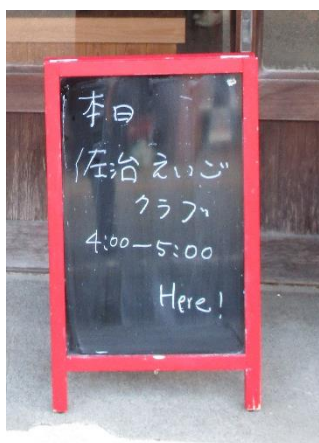 本日
佐治えいご
クラブ
4:00-5:00
Here!